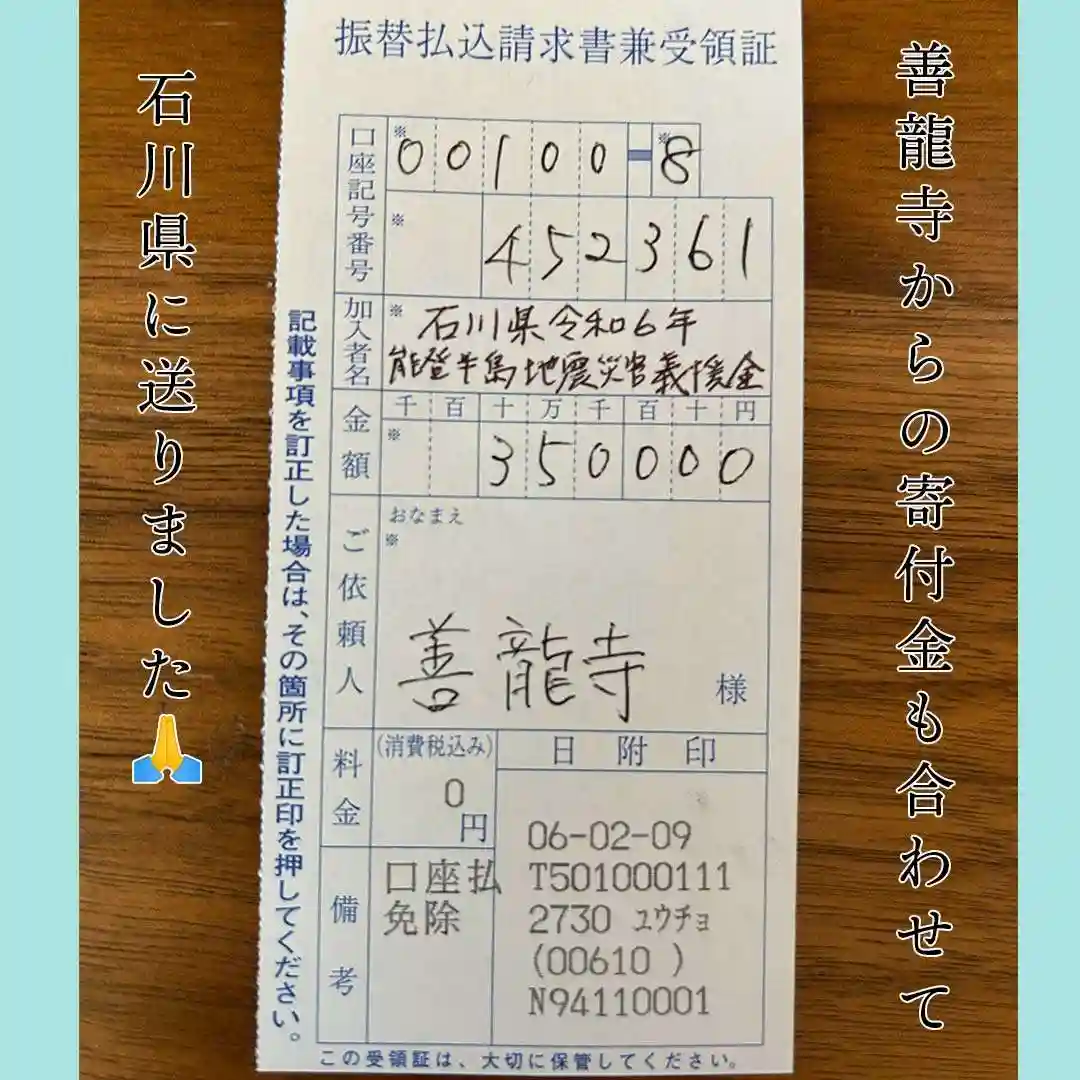 善龍寺からの寄付金も合わせて
石川県に送りました🙏
振替払込請求書兼受領証
口座記号番号
※
00100-8
※
※
452361
加入者名
※
石川県令和6年
能登半島地震災害義援金
金額
千百十万千百十円
※
350000
ご依頼人
おなまえ
※
善龍寺
様
料金
(消費税込み)
0
円
備考
口座払
免除
日附印
06-02-09
T501000111
2730 ユウチョ
(00610 )
N94110001
記載事項を訂正した場合は、その箇所に訂正印を押してください。
この受領証は、大切に保管してください。